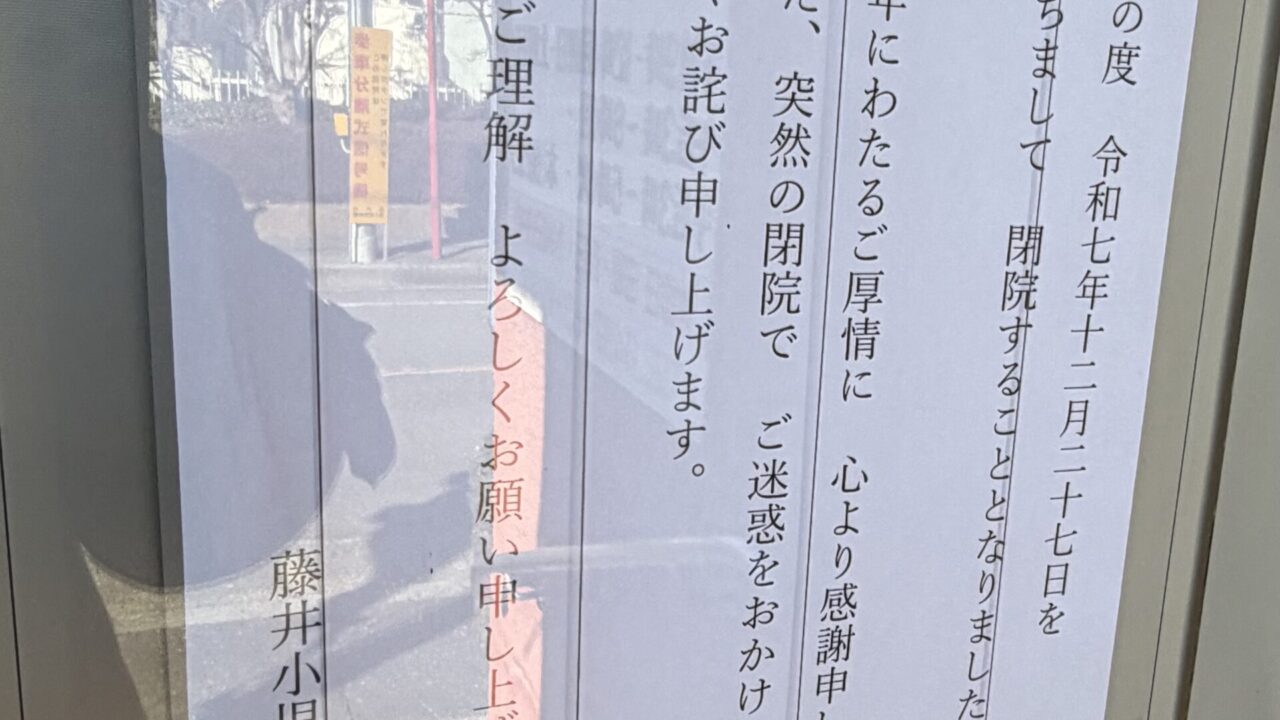 の度　令和七年十二月二十七日を
ちまして　閉院することとなりました
年にわたるご厚情に　心より感謝申し
た、突然の閉院で　ご迷惑をおかけ
くお詫び申し上げます。
ご理解　よろしくお願い申し上げ
藤井小児
歩車分離式信号機